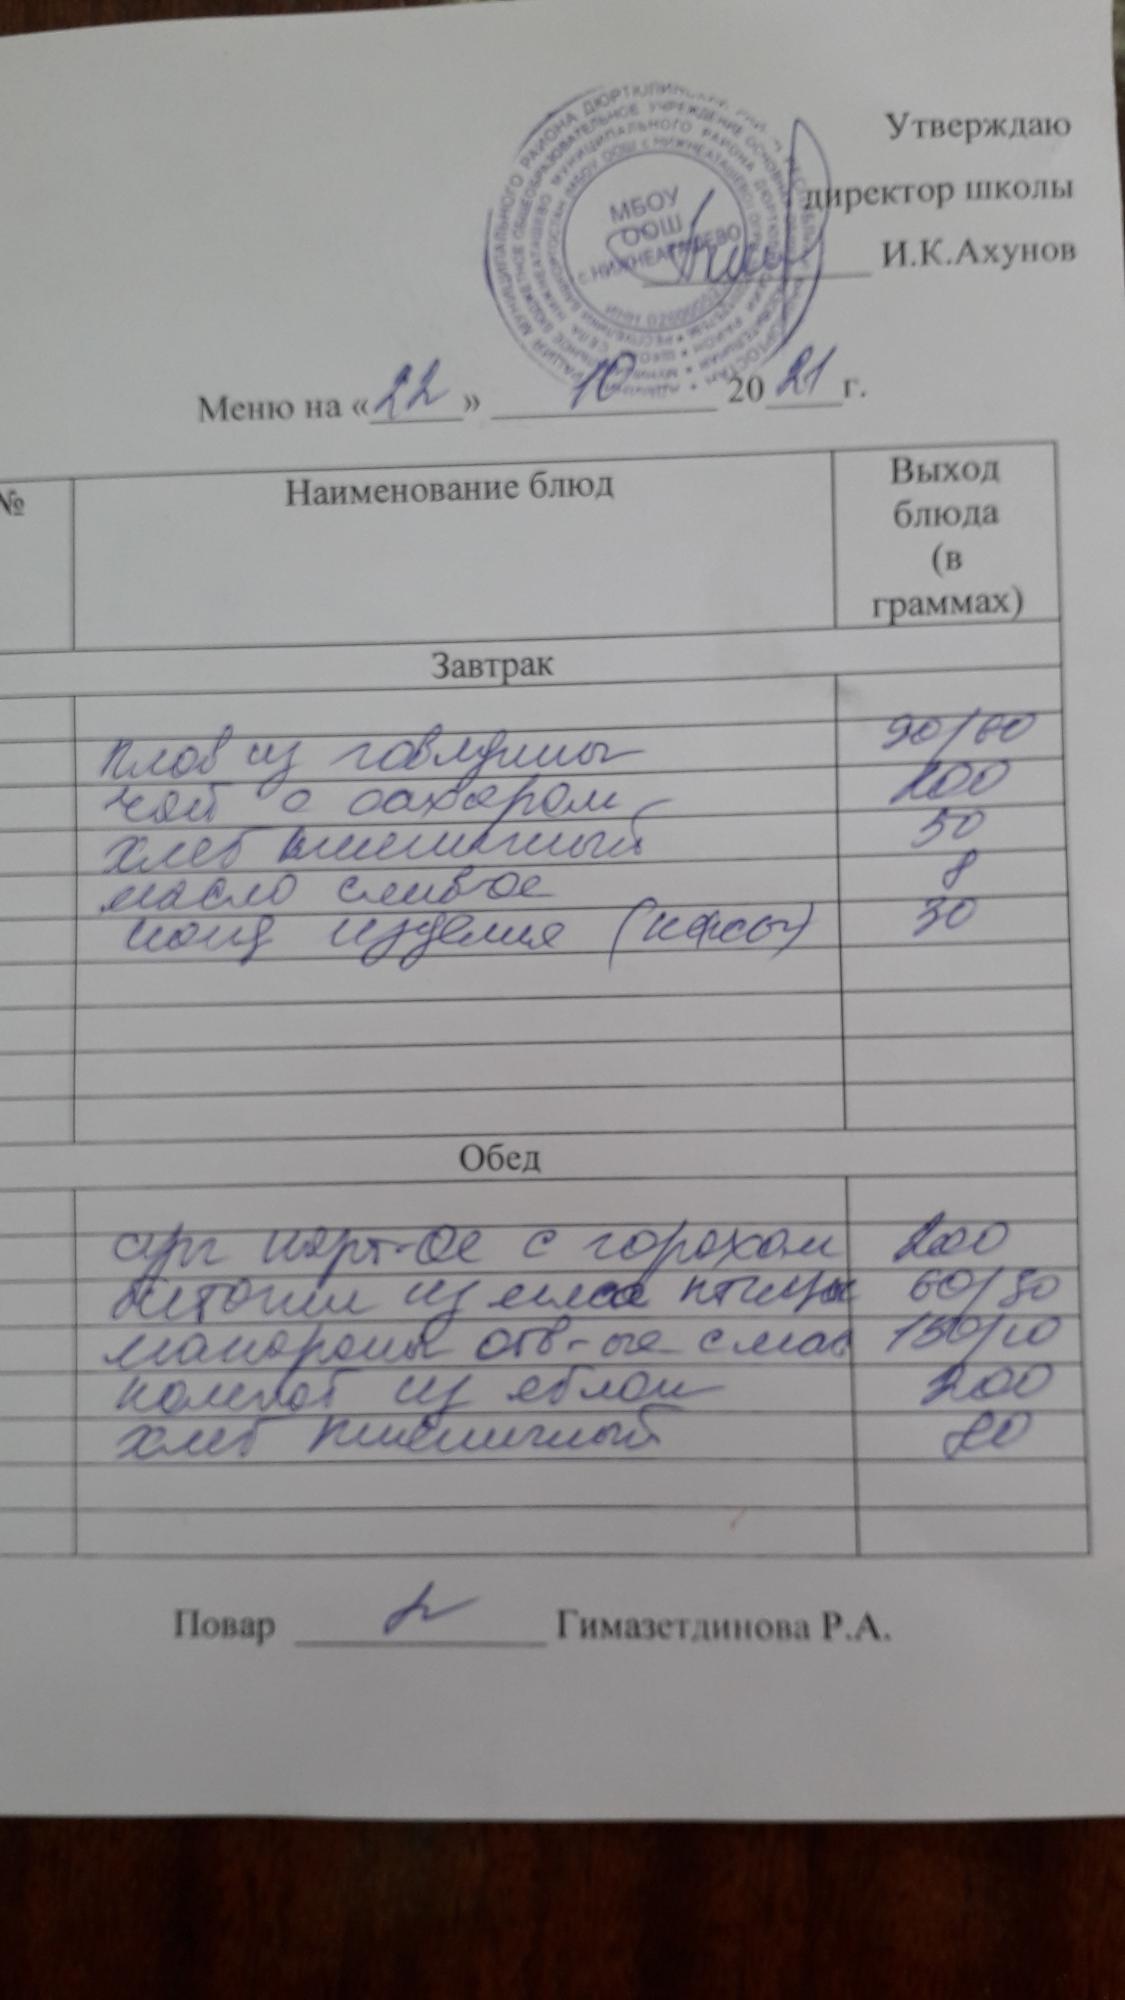 Утверждаю
директор школы
И.К.Ахунов
МБОУ
ООШ
с.НИЖНЕАТАШЕВО
Меню на «22» 10 2021 г.
№ Наименование блюд Выход блюда (в граммах)
Завтрак
плов из говядины 90/60
чай с сахаром 200
хлеб пшеничный 50
масло слив-ое 8
конд изделия 30
Обед
суп карт-ое с горохом 200
биточки из мяса птицы 60/50
макароны отв-ые с мас 150/10
компот из яблок 200
хлеб пшеничный 80
Повар Гимазетдинова Р.А.